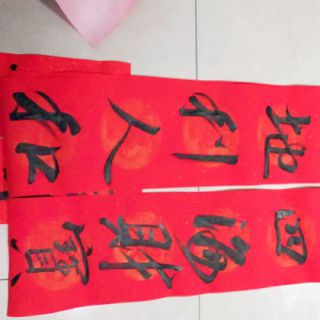 地利人和
四海財寶